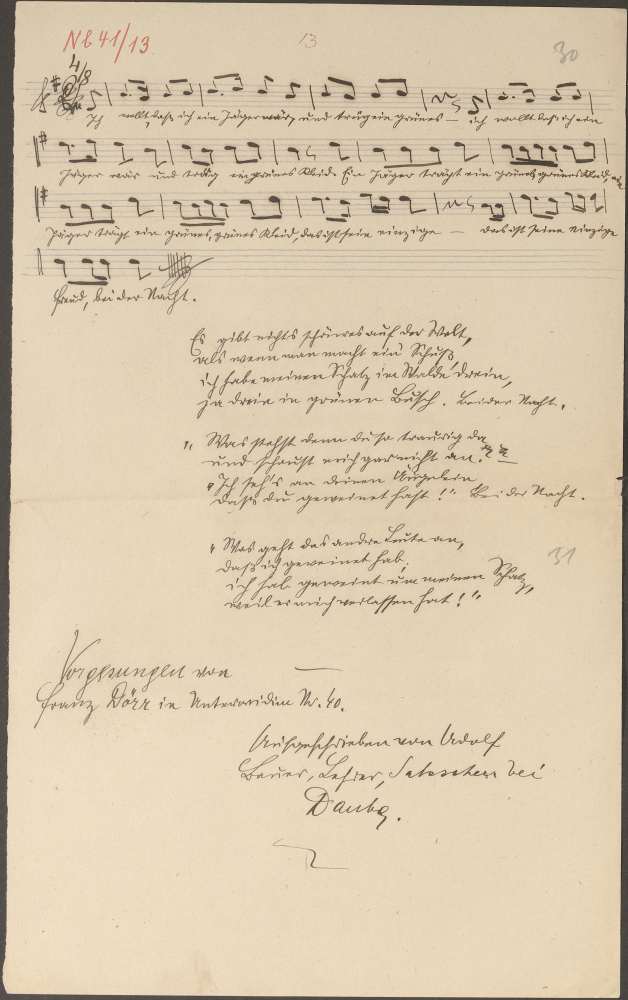 Nb 41/13
13
30
4/8
Ich wollt, daß ich ein Jäger wär, und trüg ein grünes — ich wollt daß ich ein
Jäger wär und trüg ein grünes Kleid. Ein Jäger trägt ein grünes, grünes Kleid, ein
Jäger trägt ein grünes, grünes Kleid, das ist sein einzige — das ist seine einzige
Freud, bei der Nacht.
Es gibt nichts schönres auf der Welt,
als wenn man macht ein Schuß,
ich habe meinen Schatz im Walde drein,
ja drein in grünen Busch. Bei der Nacht.
„Was stehst denn du so traurig da
und schaust mich gar nicht an?"
„Ich seh's an deinen Äugelein
daß du geweinet hast!" Bei der Nacht.
„Was geht das andre Leute an,
daß ich geweinet hab;
ich hab geweint um meinen Schatz,
weil er mich verlassen hat!"
31
Vorgesungen von
Franz Dörr in Unterwidim Nr. 40.
Aufgeschrieben von Adolf
Bauer, Lehrer, bei
Dauba.